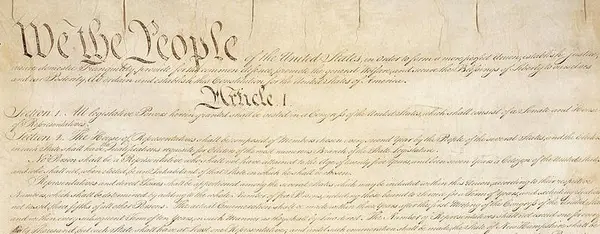 We the People of the United States, in Order to form a more perfect Union, establish Justice,
insure domestic Tranquility, provide for the common defence, promote the general Welfare, and secure the Blessings of Liberty to ourselves
and our Posterity, do ordain and establish this Constitution for the United States of America.
Article. I.
Section. 1. All legislative Powers herein granted shall be vested in a Congress of the United States, which shall consist of a Senate and House
of Representatives.
Section. 2. The House of Representatives shall be composed of Members chosen every second Year by the People of the several States, and the Electors
in each State shall have Qualifications requisite for Electors of the most numerous Branch of the State Legislature.
No Person shall be a Representative who shall not have attained to the Age of twenty five Years, and been seven Years a Citizen of the United States,
and who shall not, when elected, be an Inhabitant of that State in which he shall be chosen.
Representatives and direct Taxes shall be apportioned among the several States which may be included within this Union, according to their respective
Numbers, which shall be determined by adding to the whole Number of free Persons, including those bound to Service for a Term of Years, and excluding Indians
not taxed, three fifths of all other Persons. The actual Enumeration shall be made within three Years after the first Meeting of the Congress of the United States,
and within every subsequent Term of ten Years, in such Manner as they shall by Law direct. The Number of Representatives shall not exceed one for every
each State shall have at Least one Representative; and until such enumeration shall be made, the State of New Hampshire shall be